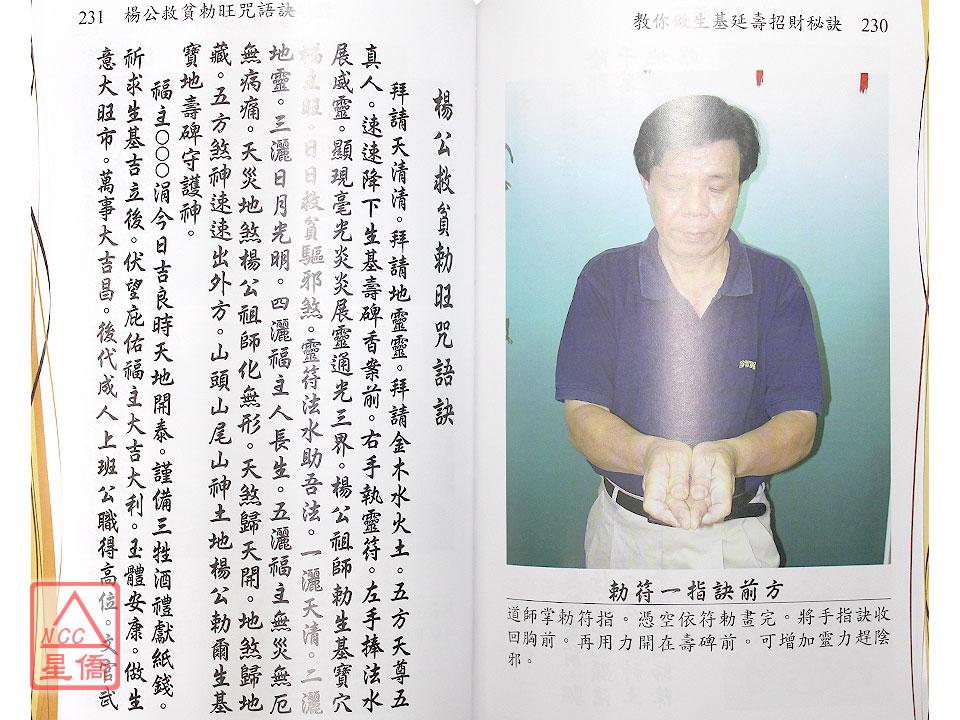 教你做生基延壽招財秘訣 230
勅符一指訣前方
道師掌勅符指。憑空依符勅畫完。將手指訣收
回胸前。再用力開在壽碑前。可增加靈力趕陰
邪。
231 楊公救貧勅旺咒語訣
楊公救貧勅旺咒語訣
拜請天清清。拜請地靈靈。拜請金木水火土。五方天尊五
真人。速速降下生基壽碑香案前。右手執靈符。左手捧法水
展威靈。顯現毫光炎炎展靈通光三界。楊公祖師勅生基寶穴
福主旺。日日救貧驅邪煞。靈符法水助吾法。一灑天清。二灑
地靈。三灑日月光明。四灑福主人長生。五灑福主無災無厄
無病痛。天災地煞楊公祖師化無形。天煞歸天開。地煞歸地
藏。五方煞神速速出外方。山頭山尾山神土地楊公勅爾生基
寶地壽碑守護神。
福主○○○涓今日吉良時天地開泰。謹備三牲酒禮獻紙錢。
祈求生基吉立後。伏望庇佑福主大吉大利。玉體安康。做生
意大旺市。萬事大吉昌。後代成人上班公職得高位。文官武
NCC
星僑